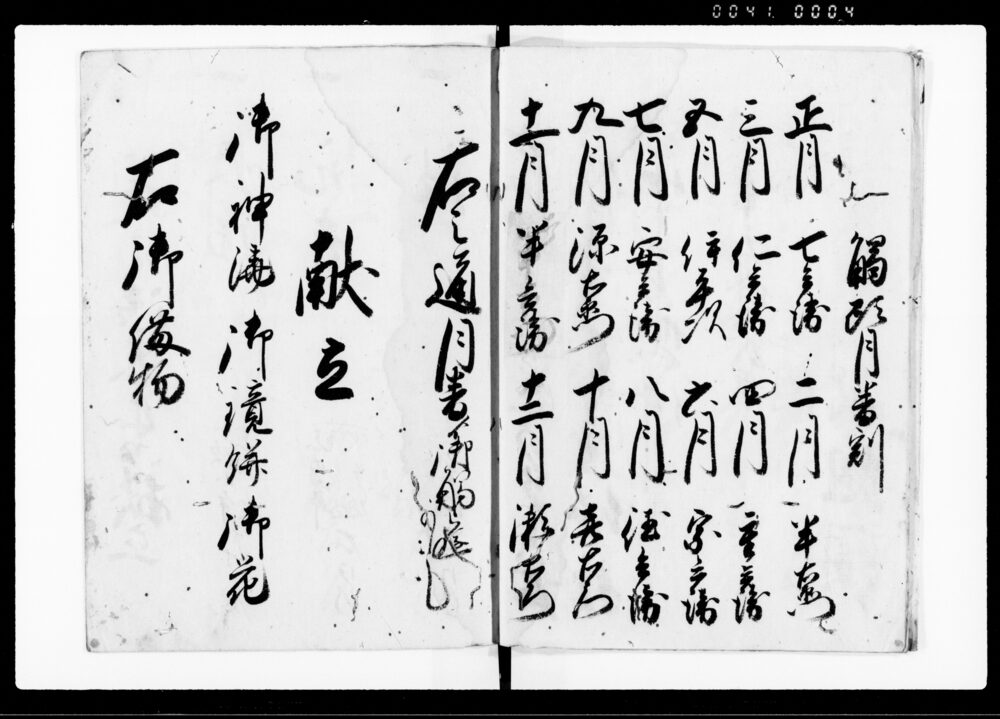 0041 0004
觸頭月番割
正月 七兵衛 二月 半右衛門
三月 仁兵衛 四月 重兵衛
五月 伊平次 六月 宗兵衛
七月 安兵衛 八月 徳兵衛
九月 源右衛門 十月 喜右衛門
十一月 半兵衛 十二月 瀬右衛門
右之通月番
献立
御神酒 御鏡餅 御花
右御備物